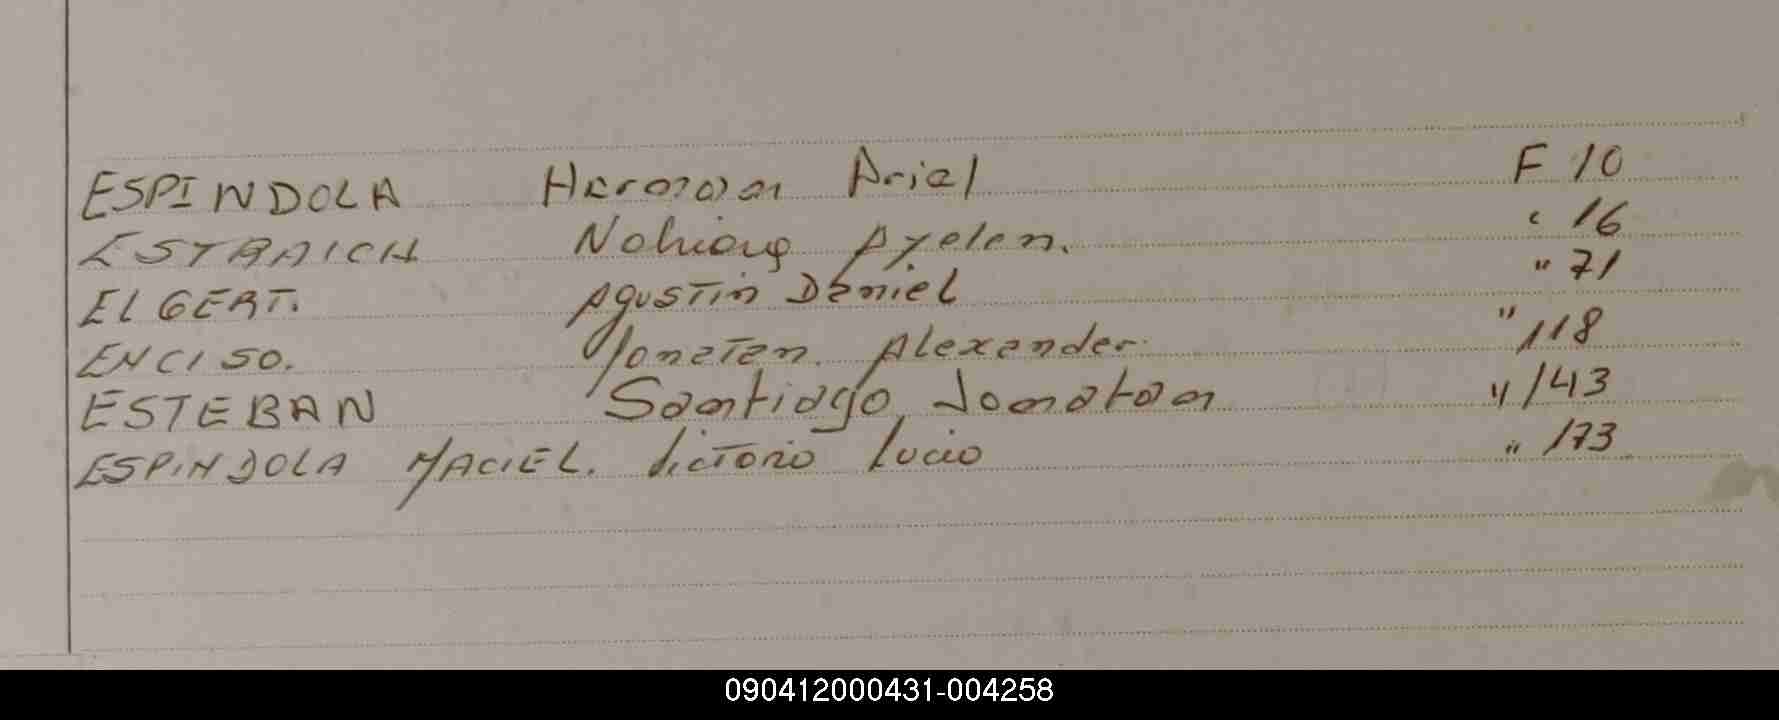 ESPINDOLA Hernan Ariel F 10
ESTRAICH Nahiara Ayelen. " 16
ELGERT. Agustin Daniel " 71
ENCISO. Yonatan. Alexander. " 118
ESTEBAN Santiago Jonatan " 143
ESPINDOLA MACIEL. Victorio Lucio " 173
090412000431-004258